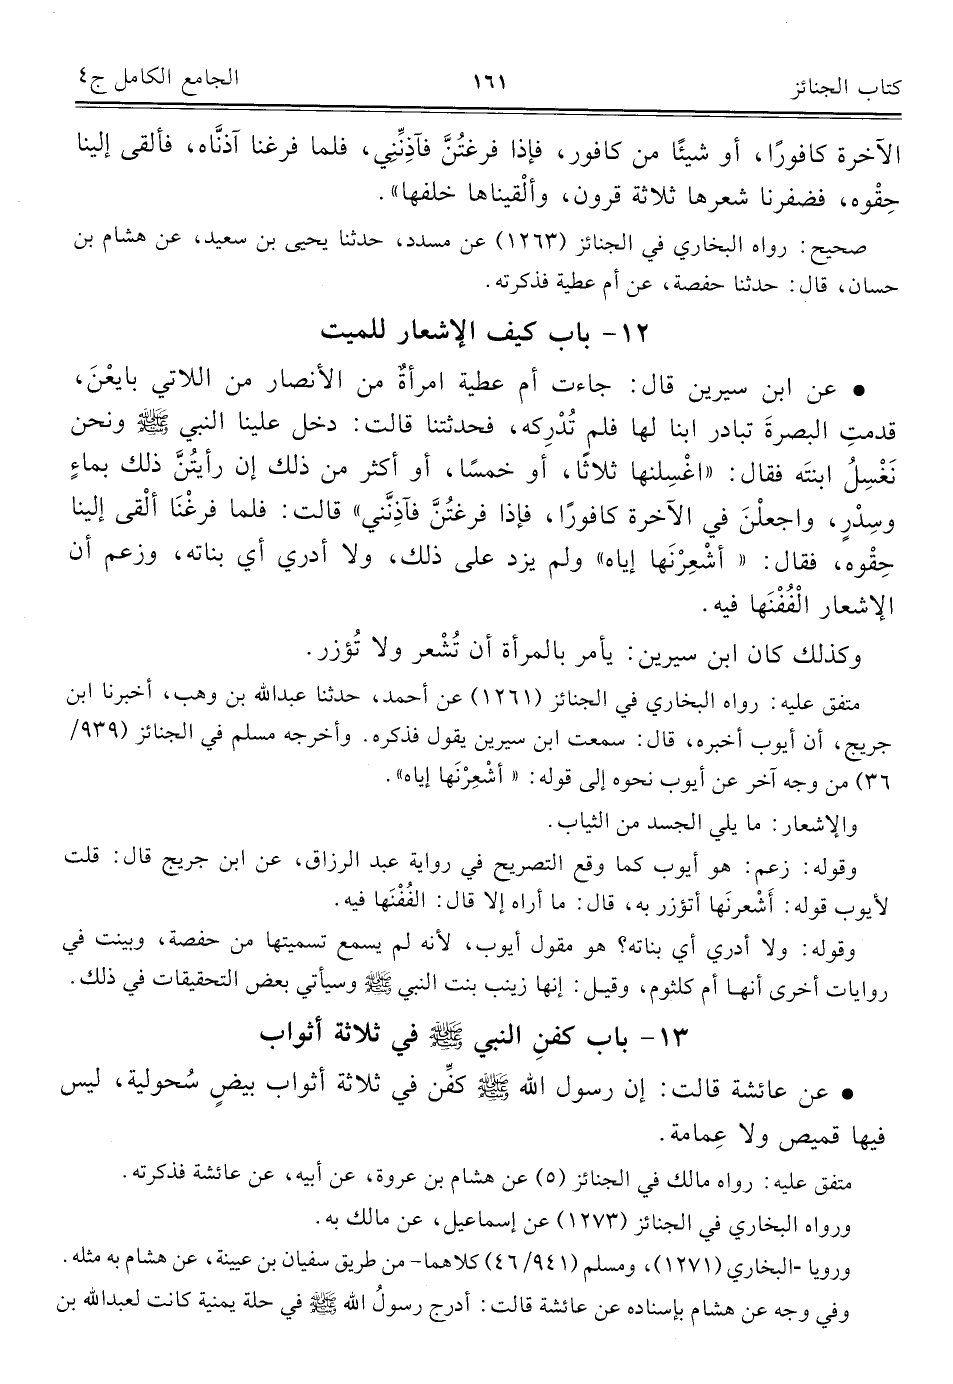 كتاب الجنائز ١٦١ الجامع الكامل ج٤
الآخرة كافورًا، أو شيئًا من كافور، فإذا فرغتُنَّ فآذِنِّني، فلما فرغنا آذنَّاه، فألقى إلينا
حِقْوه، فضفرنا شعرها ثلاثة قرون، وألْقيناها خلفها».
صحيح: رواه البخاري في الجنائز (١٢٦٣) عن مسدد، حدثنا يحيى بن سعيد، عن هشام بن
حسان، قال: حدثنا حفصة، عن أم عطية فذكرته.
١٢- باب كيف الإشعار للميت
• عن ابن سيرين قال: جاءت أم عطية امرأةٌ من الأنصار من اللاتي بايعْنَ،
قدمتِ البصرةَ تبادر ابنا لها فلم تُدْرِكه، فحدثتنا قالت: دخل علينا النبي ﷺ ونحن
نَغْسِلُ ابنتَه فقال: «اغْسِلنها ثلاثًا، أو خمسًا، أو أكثر من ذلك إن رأيتُنَّ ذلك بماءٍ
وسِدْرٍ، واجعلْنَ في الآخرة كافورًا، فإذا فرغتُنَّ فآذِنَّني» قالت: فلما فرغْنَا ألْقى إلينا
حِقْوه، فقال: « أشْعِرْنَها إياه» ولم يزد على ذلك، ولا أدري أي بناته، وزعم أن
الإشعار الْفُفْنَها فيه.
وكذلك كان ابن سيرين: يأمر بالمرأة أن تُشْعر ولا تُؤزر.
متفق عليه: رواه البخاري في الجنائز (١٢٦١) عن أحمد، حدثنا عبدالله بن وهب، أخبرنا ابن
جريج، أن أيوب أخبره، قال: سمعت ابن سيرين يقول فذكره. وأخرجه مسلم في الجنائز (٩٣٩/
٣٦) من وجه آخر عن أيوب نحوه إلى قوله: « أشْعِرْنَها إياه».
والإشعار: ما يلي الجسد من الثياب.
وقوله: زعم: هو أيوب كما وقع التصريح في رواية عبد الرزاق، عن ابن جريج قال: قلت
لأيوب قوله: أَشْعرنَها أتؤزر به، قال: ما أراه إلا قال: الفُفْنَها فيه.
وقوله: ولا أدري أي بناته؟ هو مقول أيوب، لأنه لم يسمع تسميتها من حفصة، وبينت في
روايات أخرى أنهـا أم كلثوم، وقيـل: إنها زينب بنت النبي ﷺ وسيأتي بعض التحقيقات في ذلك.
١٣- باب كفنِ النبي ﷺ في ثلاثة أثواب
• عن عائشة قالت: إن رسول الله ﷺ كفِّن في ثلاثة أثواب بيضٍ سُحولية، ليس
فيها قميص ولا عِمامة.
متفق عليه: رواه مالك في الجنائز (٥) عن هشام بن عروة، عن أبيه، عن عائشة فذكرته.
ورواه البخاري في الجنائز (١٢٧٣) عن إسماعيل، عن مالك به.
ورويا -البخاري (١٢٧١)، ومسلم (٩٤١/ ٤٦) كلاهما- من طريق سفيان بن عيينة، عن هشام به مثله.
وفي وجه عن هشام بإسناده عن عائشة قالت: أدرج رسولُ الله ﷺ في حلة يمنية كانت لعبدالله بن